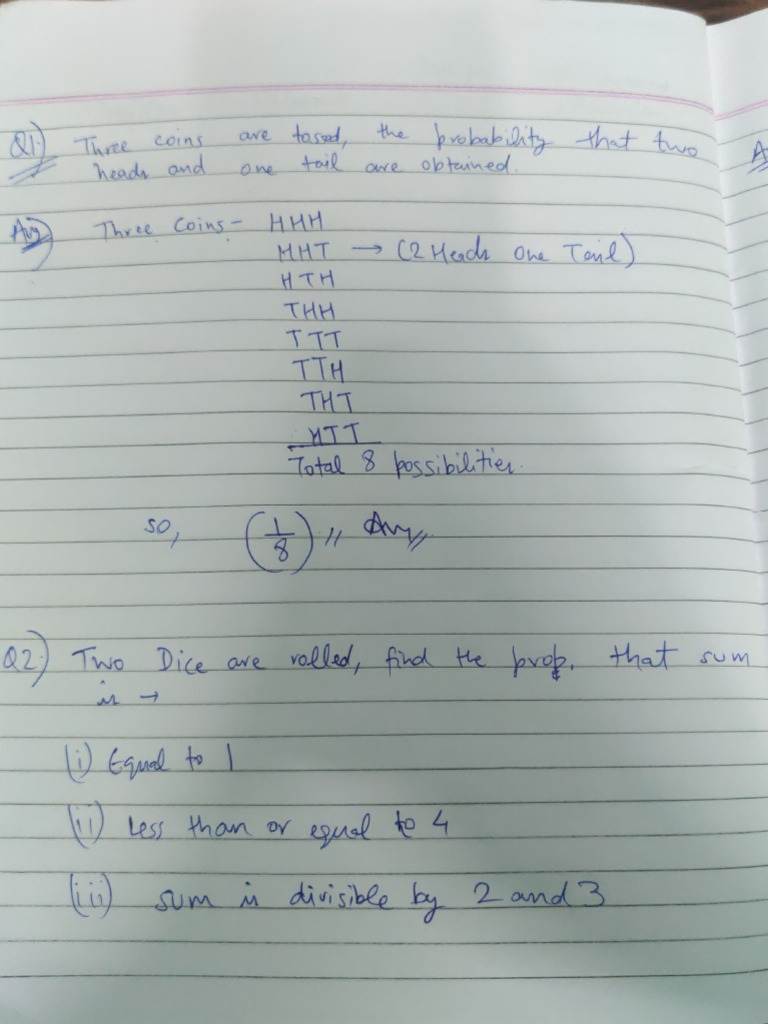 Q1.) Three coins are tosed, the probability that two
heads and one tail are obtained.
Ans) Three Coins - HHH
HHT → (2 Heads One Tail)
HTH
THH
TTT
TTH
THT
HTT
Total 8 possibilities.
so, (1/8) // Ans //
Q2.) Two Dice are rolled, find the prob. that sum
is →
(i) Equal to 1
(ii) Less than or equal to 4
(iii) sum is divisible by 2 and 3